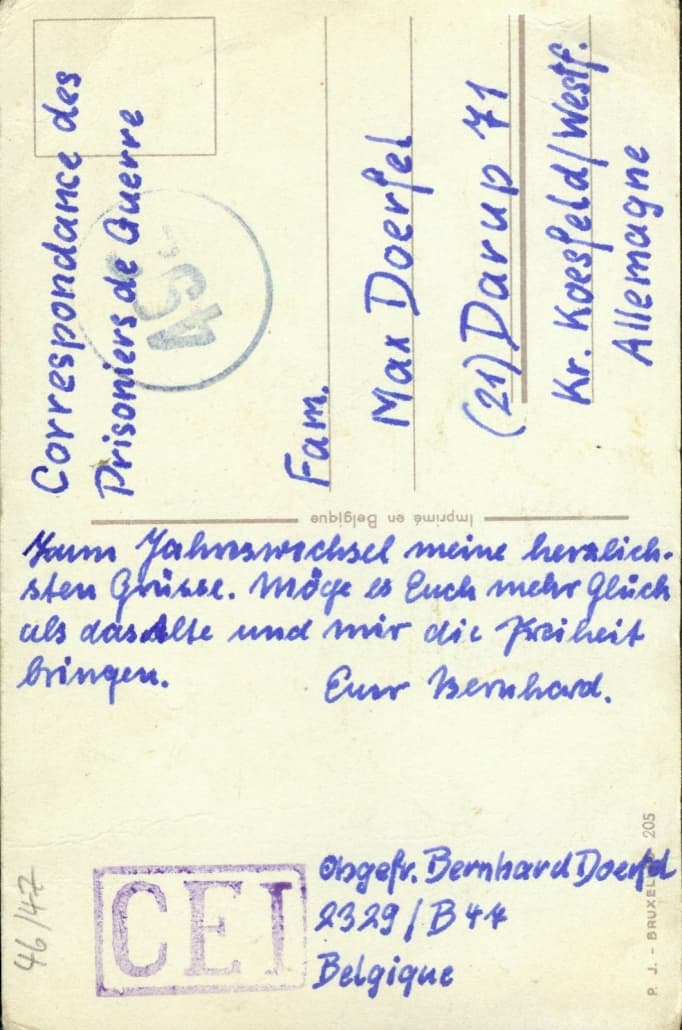 Correspondance des
Prisoniers de Guerre
Fam.
Max Doerfel
(21) Darup 71
Kr. Koesfeld/Westf.
Allemagne
Imprimé en Belgique
Zum Jahreswechsel meine herzlich-
sten Grüsse. Möge es Euch mehr Glück
als das Alte und mir die Freiheit
bringen.
Euer Bernhard.
Obgefr. Bernhard Doerfel
2329/B 47
Belgique
CEI
46/47
P. J. - BRUXELLES 205